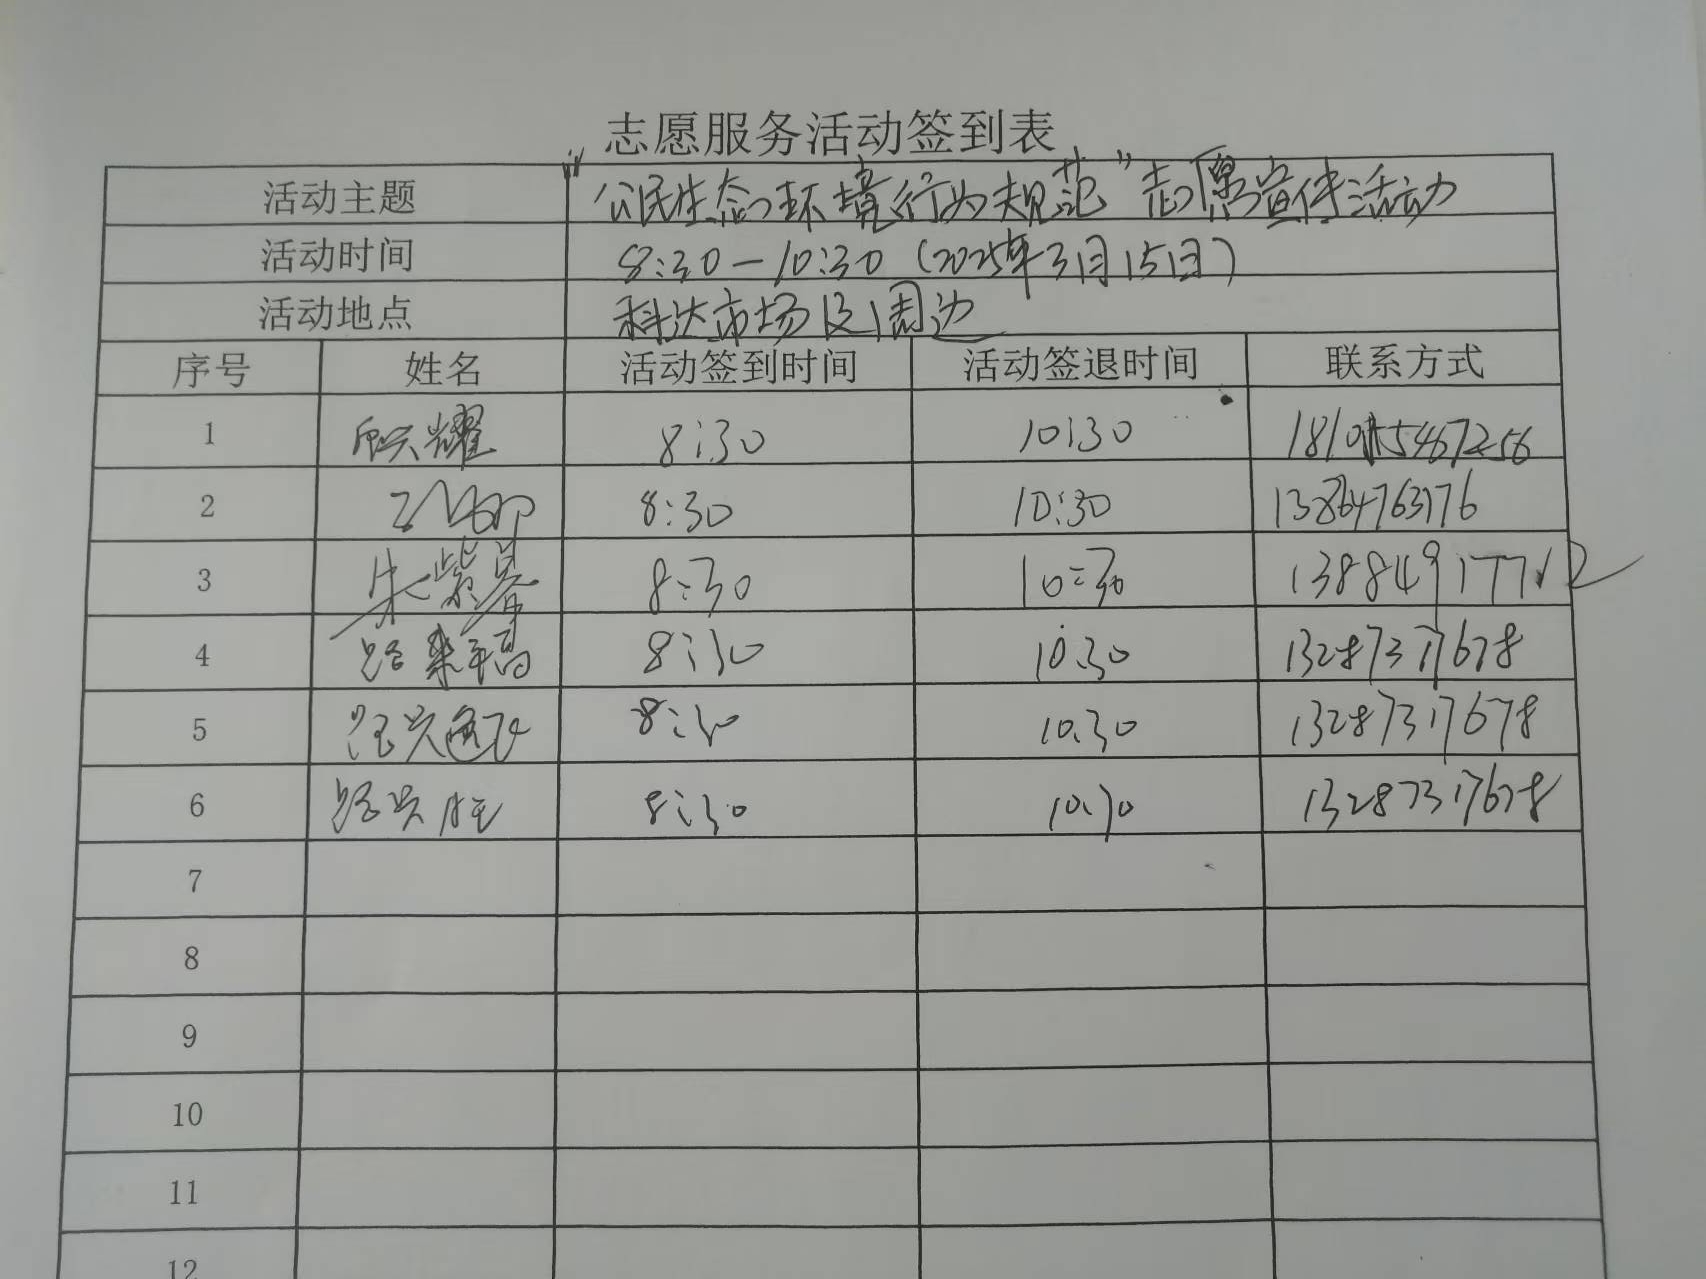 志愿服务活动签到表
活动主题 “公民生态环境行为规范”志愿宣传活动
活动时间 8:30—10:30（2025年3月15日）
活动地点 科达市场及周边
序号 姓名 活动签到时间 活动签退时间 联系方式
1 耀 8:30 10:30
2 8:30 10:30 13864763176
3 朱紫 8:30 10:30
4 路 8:30 10:30 13287317678
5 兴 8:30 10:30 13287317678
6 路兴胜 8:30 10:30 13287317678
7
8
9
10
11
12